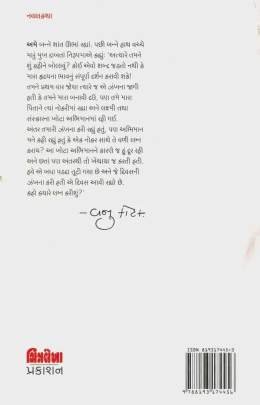 નવલકથા
અમે બન્ને શાંત ઊભાં રહ્યાં. પછી બન્ને હાથ વચ્ચે
મારું મુખ રાખતાં નિરૂપમાએ કહ્યું: 'અત્યારે તમને
શું કહીને બોલાવું? કોઈ એવો શબ્દ જડતો નથી કે
મારા હૃદયના ભાવનું સંપૂર્ણ દર્શન કરાવી શકે!
તમને પ્રથમ વાર જોયા ત્યારે જ એ ઝંખના જાગી
હતી કે તમને મારા બનાવી દઉં, પણ તમે મારા
પિતાને ત્યાં નોકરીમાં રહ્યા અને લક્ષ્મી તથા
સંસ્કારના ખોટા અભિમાનમાં રહી ગઈ.
અંતર તમારી ઝંખના કરી રહ્યું હતું, પણ અભિમાન
મને કહી રહ્યું હતું કે એક નોકર સાથે તે વળી લગ્ન
કરાય? આ ખોટા અભિમાનને કારણે જ હું દૂર રહી
અને છતાં પણ અંતરથી તો ખેંચાયા જ કરતી હતી.
હવે એ બધા પડદા તૂટી ગયા છે અને જે દિવસની
ઝંખના કરી હતી એ દિવસ આવી રહ્યો છે.
કહો ક્યારે લગ્ન કરીશું?'
ચિત્રલેખા
પ્રકાશન